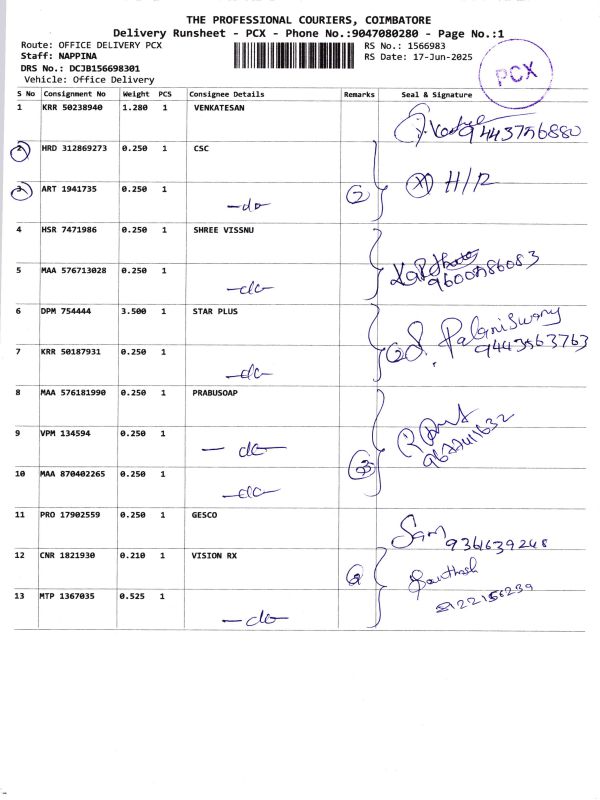 THE PROFESSIONAL COURIERS, COIMBATORE
Delivery Runsheet - PCX - Phone No.:9047080280 - Page No.:1
Route: OFFICE DELIVERY PCX
Staff: NAPPINA
DRS No.: DCJB156698301
Vehicle: Office Delivery
RS No.: 1566983
RS Date: 17-Jun-2025
PCX
S No Consignment No Weight PCS Consignee Details Remarks Seal & Signature
1 KRR 50238940 1.280 1 VENKATESAN 9443756880
2 HRD 312869273 0.250 1 CSC
3 ART 1941735 0.250 1 -do- 2 X H/R
4 HSR 7471986 0.250 1 SHREE VISSNU
5 MAA 576713028 0.250 1 -do-
6 DPM 754444 3.500 1 STAR PLUS S. Palaniswamy
7 KRR 50187931 0.250 1 -do- 2 9443563763
8 MAA 576181990 0.250 1 PRABUSOAP
9 VPM 134594 0.250 1 -do- 3
10 MAA 870402265 0.250 1 -do-
11 PRO 17902559 0.250 1 GESCO Sam
12 CNR 1821930 0.210 1 VISION RX 2
13 MTP 1367035 0.525 1 -do-